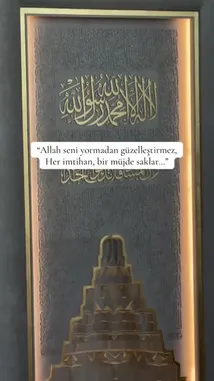 لا اله الا الله محمد رسول الله
“Allah seni yormadan güzelleştirmez,
Her imtihan, bir müjde saklar...”